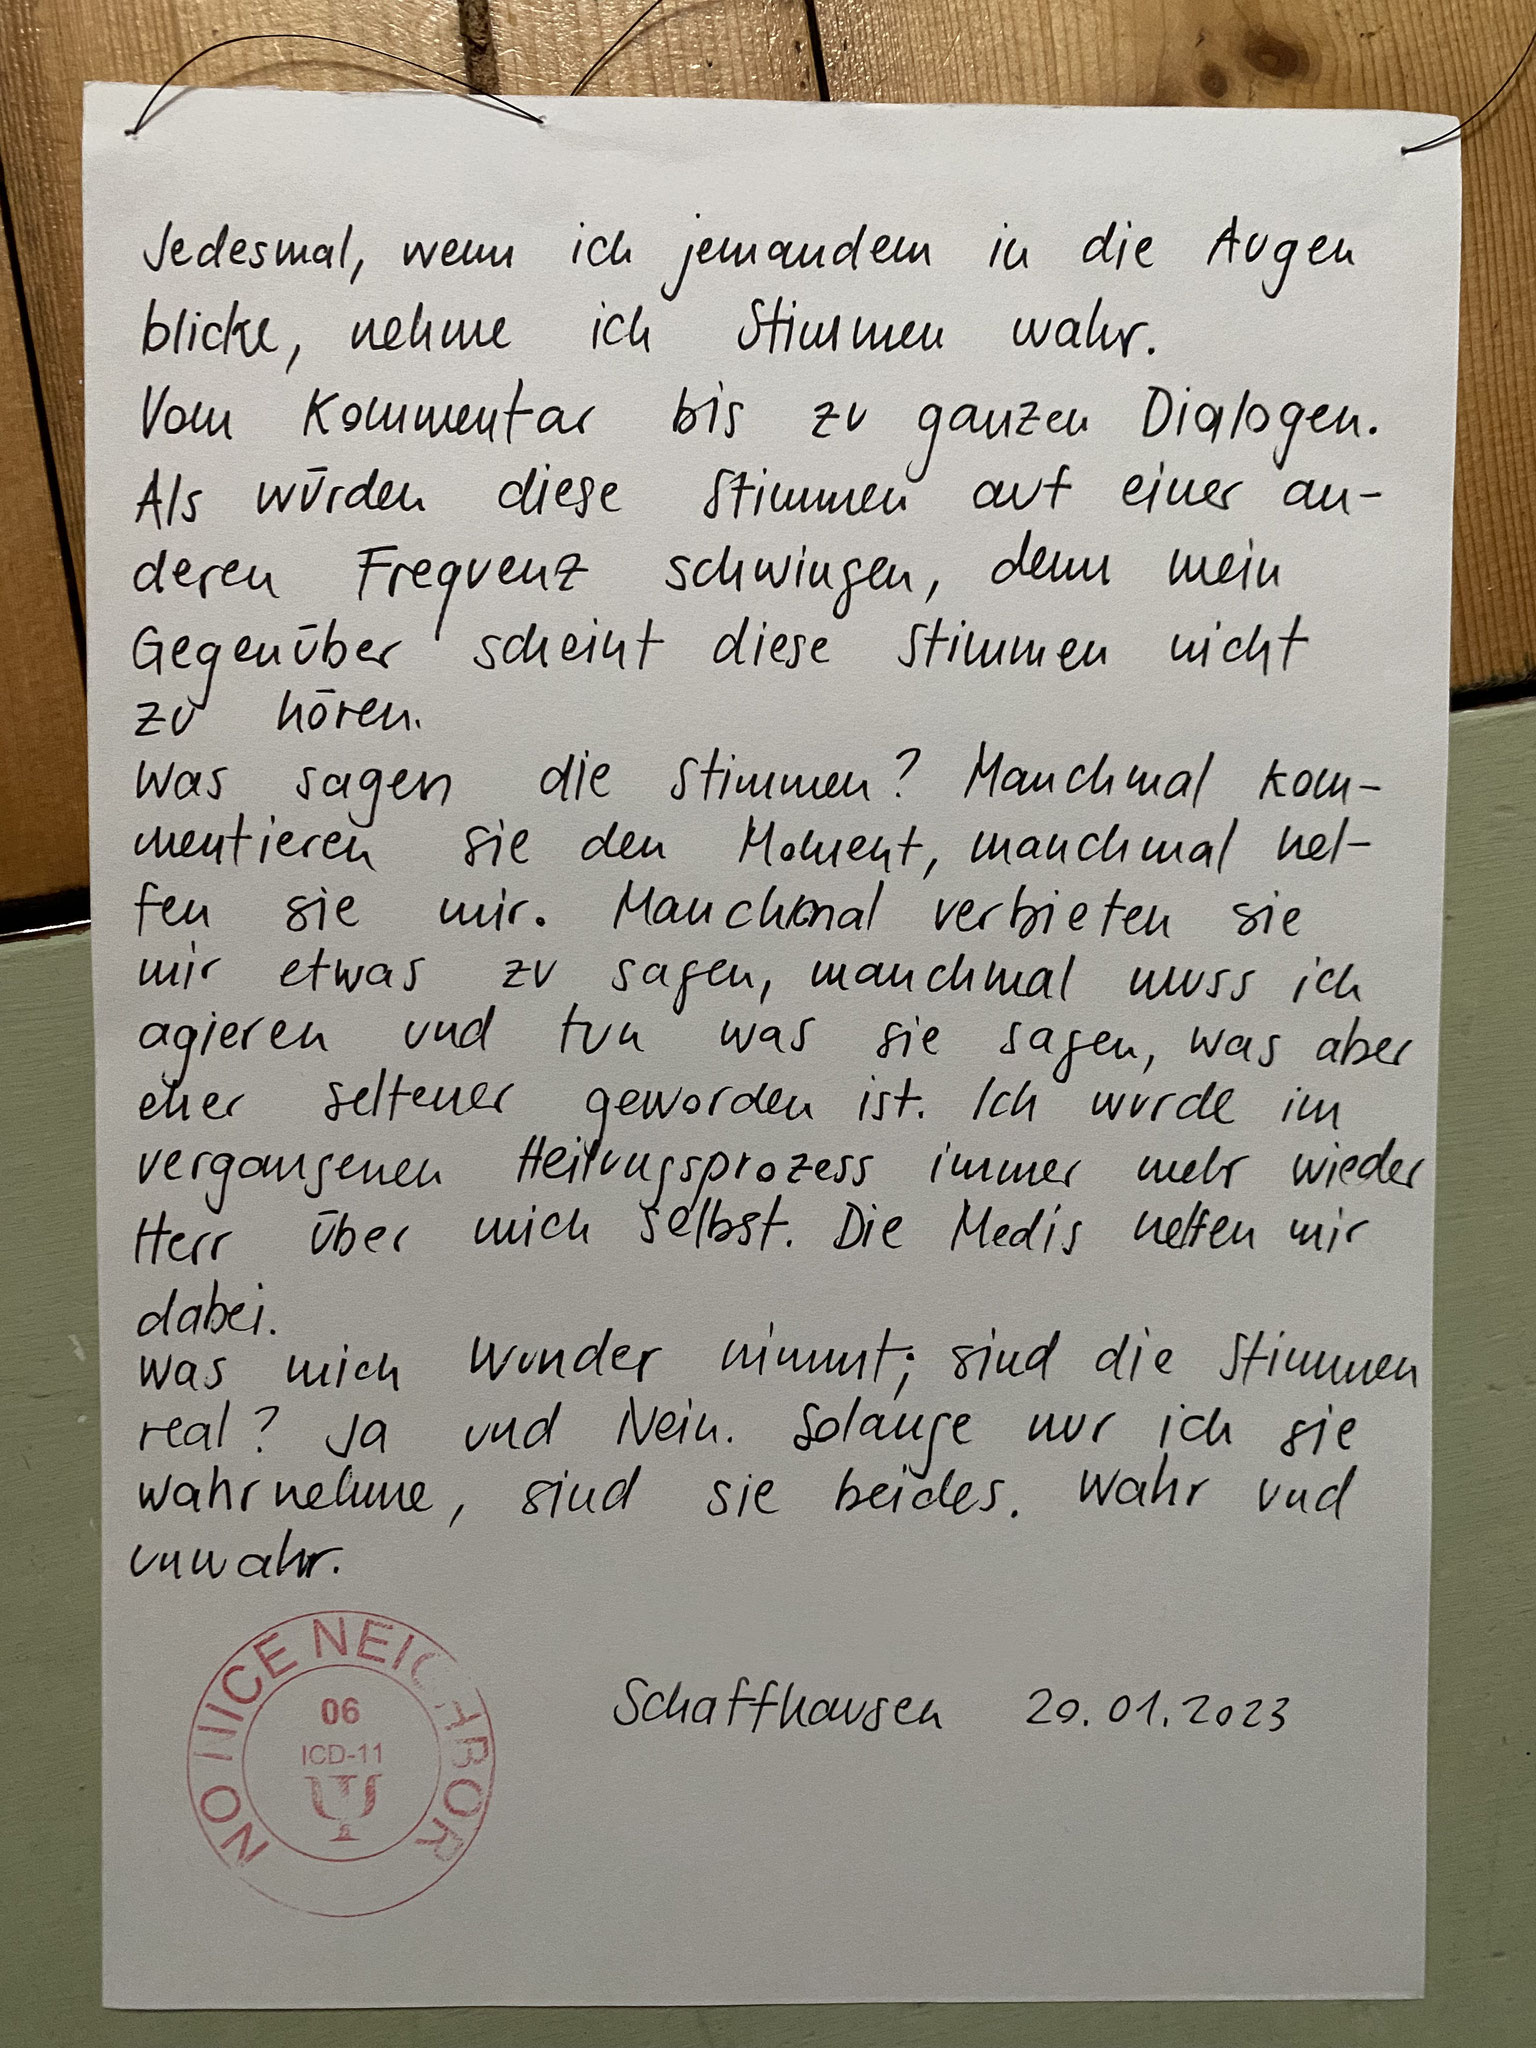 Jedesmal, wenn ich jemandem in die Augen
blicke, nehme ich Stimmen wahr.
Vom Kommentar bis zu ganzen Dialogen.
Als würden diese Stimmen auf einer an-
deren Frequenz schwingen, denn mein
Gegenüber scheint diese Stimmen nicht
zu hören.
Was sagen die Stimmen? Manchmal kom-
mentieren sie den Moment, manchmal hel-
fen sie mir. Manchmal verbieten sie
mir etwas zu sagen, manchmal muss ich
agieren und tun was sie sagen, was aber
eher seltener geworden ist. Ich wurde im
vergangenen Heilungsprozess immer mehr wieder
Herr über mich selbst. Die Medis helfen mir
dabei.
Was mich Wunder nimmt; sind die Stimmen
real? Ja und Nein. Solange nur ich sie
wahrnehme, sind sie beides. Wahr und
unwahr.
NO NICE NEIGHBOR
06
ICD-11
Schaffhausen 20.01.2023